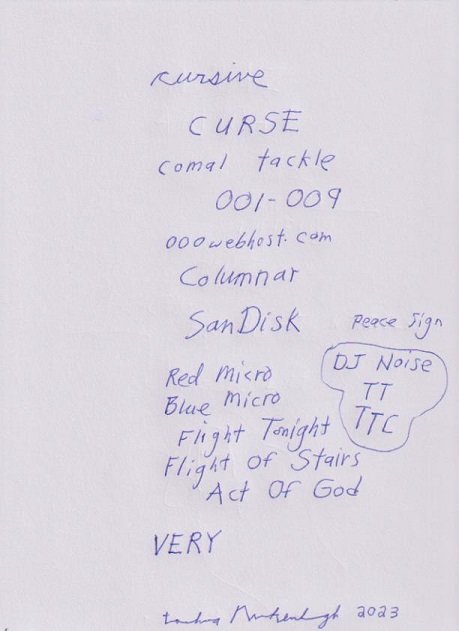 cursive
CURSE
comal tackle
001-009
000webhost.com
Columnar
SanDisk
Peace Sign
DJ Noise
TT
TTC
Red Micro
Blue Micro
Flight Tonight
Flight Of Stairs
Act Of God
VERY
2023